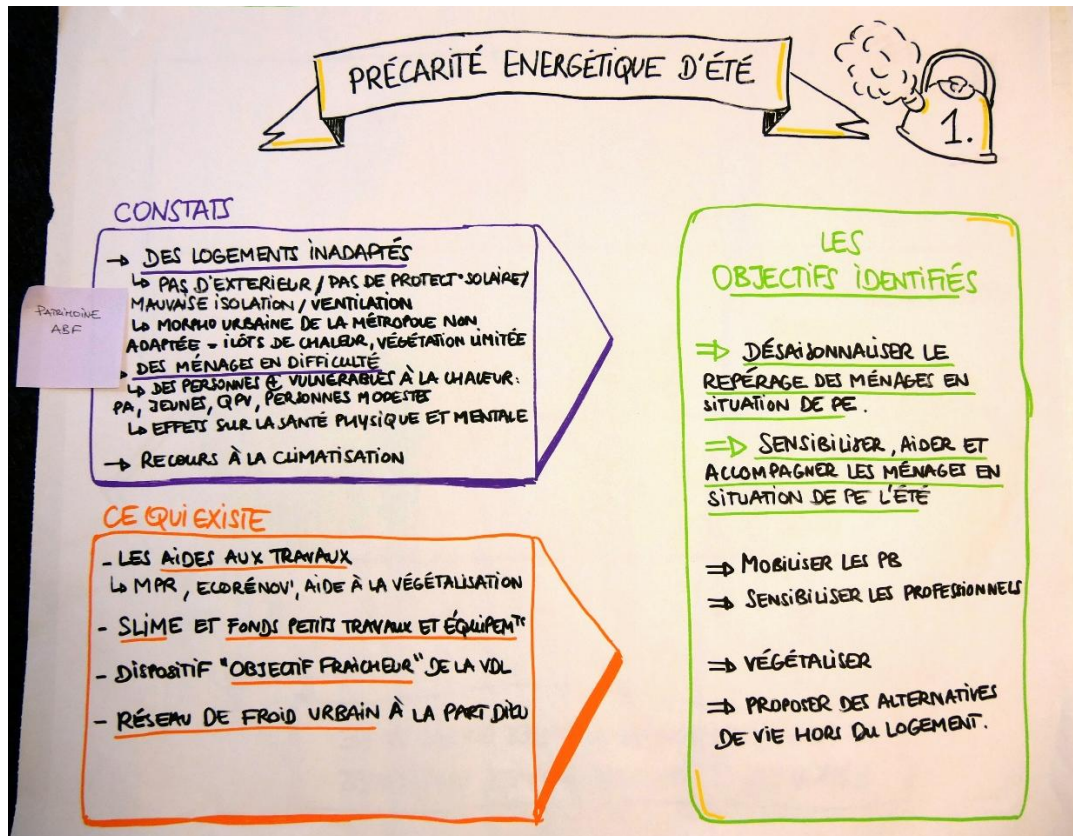 PRÉCARITÉ ENERGÉTIQUE D'ÉTÉ
1.
CONSTATS
→ DES LOGEMENTS INADAPTÉS
↳ PAS D'EXTERIEUR / PAS DE PROTECT° SOLAIRE /
MAUVAISE ISOLATION / VENTILATION
↳ MORPHO URBAINE DE LA MÉTROPOLE NON
ADAPTÉE - ILÔTS DE CHALEUR, VÉGÉTATION LIMITÉE
→ DES MÉNAGES EN DIFFICULTÉ
↳ DES PERSONNES ⊕ VULNÉRABLES À LA CHALEUR :
PA, JEUNES, QPV, PERSONNES MODESTES
↳ EFFETS SUR LA SANTÉ PHYSIQUE ET MENTALE
→ RECOURS À LA CLIMATISATION
PATRIMOINE
ABF
CE QUI EXISTE
- LES AIDES AUX TRAVAUX
↳ MPR, ECORÉNOV', AIDE À LA VÉGÉTALISATION
- SLIME ET FONDS PETITS TRAVAUX ET ÉQUIPEMTS
- DISPOSITIF "OBJECTIF FRAÎCHEUR" DE LA VDL
- RÉSEAU DE FROID URBAIN À LA PART DIEU
LES
OBJECTIFS IDENTIFIÉS
⇒ DÉSAISONNALISER LE
REPÉRAGE DES MÉNAGES EN
SITUATION DE PE.
⇒ SENSIBILISER, AIDER ET
ACCOMPAGNER LES MÉNAGES EN
SITUATION DE PE L'ÉTÉ
⇒ MOBILISER LES PB
⇒ SENSIBILISER LES PROFESSIONNELS
⇒ VÉGÉTALISER
⇒ PROPOSER DES ALTERNATIVES
DE VIE HORS DU LOGEMENT.